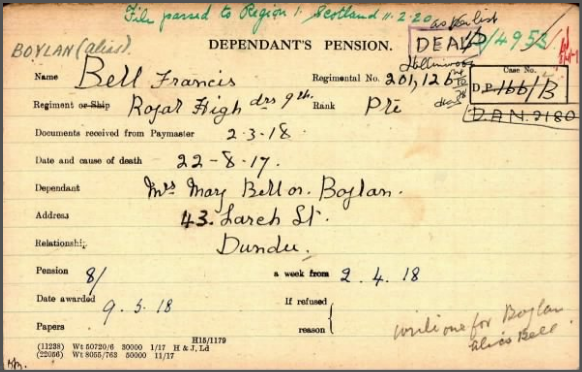 File passed to Region 1. Scotland 11.2.20 as per list
BOYLAN (alias)
DEPENDANT'S PENSION.
DEAD
/14953
Name Bell Francis
Regimental No. 201,126
Case No.
D.P.166/B
D.A.N.2180
Regiment or Ship Royal High drs 9th.
Rank Pte
Documents received from Paymaster 2-3-18.
Date and cause of death 22-8-17.
Dependant Mrs Mary Bell or Boylan.
Address 43. Larch St.
Relationship Dundee.
Pension 8/ a week from 2.4.18
Date awarded 9.5.18
If refused
Papers
reason
write one for Boylan
alias Bell.
H15/1179
(11238) Wt 50720/6 30000 1/17 H & J, Ld
(22056) Wt 8055/763 50000 11/17